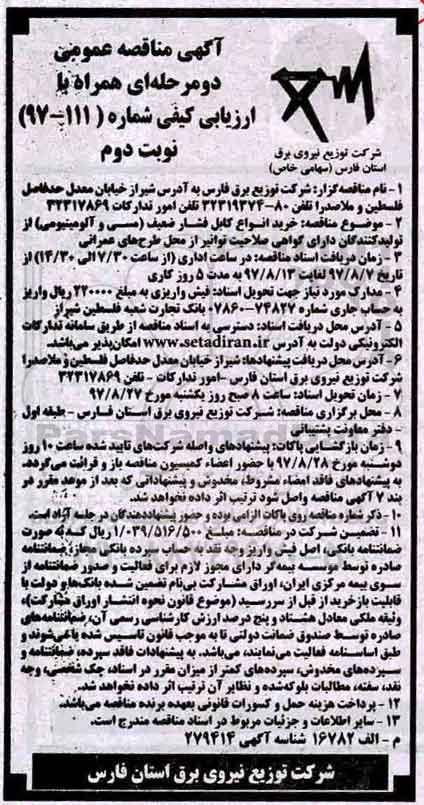 آگهی مناقصه عمومی
دو مرحله‌ای همراه با
ارزیابی کیفی شماره (۱۱۱-۹۷)
نوبت دوم
شرکت توزیع نیروی برق
استان فارس (سهامی خاص)
۱ - نام مناقصه‌گزار: شرکت توزیع برق فارس به آدرس شیراز خیابان معدل حدفاصل
فلسطین و ملاصدرا تلفن ۸۰-۳۲۳۱۹۳۷۴ تلفن امور تدارکات ۳۲۳۱۷۸۶۹
۲ - موضوع مناقصه: خرید انواع کابل فشار ضعیف (مسی و آلومینیومی) از
تولیدکنندگان دارای گواهی صلاحیت توانیر از محل طرح‌های عمرانی
۳ - زمان دریافت اسناد مناقصه: در ساعت اداری (از ساعت ۷/۳۰ الی ۱۴/۳۰) از
تاریخ ۹۷/۸/۷ لغایت ۹۷/۸/۱۳ به مدت ۵ روز کاری
۴ - مدارک مورد نیاز جهت تحویل اسناد: فیش واریزی به مبلغ ۲۲۰۰۰۰ ریال واریز
به حساب جاری شماره ۷۴۸۲۷-۰۷۸۶۰ بانک تجارت شعبه فلسطین شیراز
۵ - آدرس محل دریافت اسناد: دسترسی به اسناد مناقصه از طریق سامانه تدارکات
الکترونیکی دولت به آدرس www.setadiran.ir امکان‌پذیر می‌باشد.
۶ - آدرس محل دریافت پیشنهادها: شیراز خیابان معدل حدفاصل فلسطین و ملاصدرا
شرکت توزیع نیروی برق استان فارس -امور تدارکات - تلفن ۳۲۳۱۷۸۶۹
۷ - زمان تحویل اسناد: ساعت ۸ صبح روز یکشنبه مورخ ۹۷/۸/۲۷
۸ - محل برگزاری مناقصه: شرکت توزیع نیروی برق استان فارس - طبقه اول
- دفتر معاونت پشتیبانی
۹ - زمان بازگشایی پاکات: پیشنهادهای واصله شرکت‌های تایید شده ساعت ۱۰ روز
دوشنبه مورخ ۹۷/۸/۲۸ با حضور اعضاء کمیسیون مناقصه باز و قرائت می‌گردد.
به پیشنهادهای فاقد امضاء مشروط، مخدوش و پیشنهاداتی که بعد از موعد مقرر در
بند ۷ آگهی مناقصه واصل شود ترتیب اثر داده نخواهد شد.
۱۰ - ذکر شماره مناقصه روی پاکات الزامی بوده و حضور پیشنهاددهندگان در جلسه آزاد است.
۱۱ - تضمین شرکت در مناقصه: مبلغ ۱/۰۳۹/۵۱۶/۵۰۰ ریال که به صورت
ضمانتنامه بانکی، اصل فیش واریز وجه نقد به حساب سپرده بانکی مجاز، ضمانتنامه
صادره توسط موسسه بیمه‌گر دارای مجوز لازم برای فعالیت و صدور ضمانتنامه از
سوی بیمه مرکزی ایران، اوراق مشارکت بی‌نام تضمین شده بانک‌ها و دولت با
قابلیت بازخرید از قبل از سررسید (موضوع قانون نحوه انتشار اوراق مشارکت)،
وثیقه ملکی معادل هشتاد و پنج درصد ارزش کارشناسی رسمی آن، ضمانتنامه‌های
صادره توسط صندوق ضمانت دولتی تا به موجب قانون تاسیس شده یا می‌شوند و
طبق اساسنامه فعالیت می‌نمایند، می‌باشد. به پیشنهادات فاقد سپرده، ضمانتنامه و
سپرده‌های مخدوش، سپرده‌های کمتر از میزان مقرر در اسناد، چک شخصی، وجه
نقد، سفته، مطالبات بلوکه‌شده و نظایر آن ترتیب اثر داده نخواهد شد.
۱۲ - پرداخت هزینه حمل و کسورات قانونی بعهده برنده مناقصه می‌باشد.
۱۳ - سایر اطلاعات و جزئیات مربوط در اسناد مناقصه مندرج است.
م - الف ۱۶۷۸۲ شناسه آگهی ۲۷۹۴۱۴
شرکت توزیع نیروی برق استان فارس